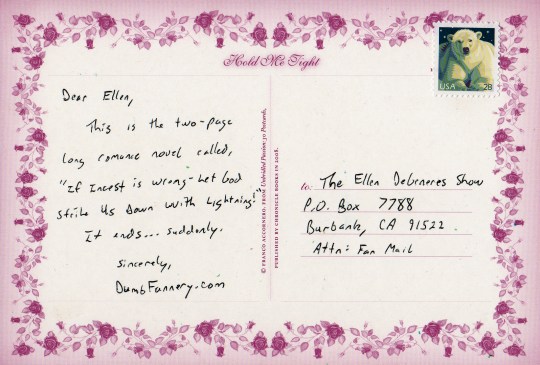 Hold Me Tight
Dear Ellen,
This is the two-page
long romance novel called,
"If Incest is wrong-Let God
strike us down with lightning!"
It ends... suddenly.
sincerely,
DumbFannery.com
© FRANCO ACCORNERO, FROM Unbridled Passion: 30 Postcards,
PUBLISHED BY CHRONICLE BOOKS IN 2008.
USA 28
to: The Ellen Degeneres Show
P.O. Box 7788
Burbank, CA 91522
Attn: Fan Mail